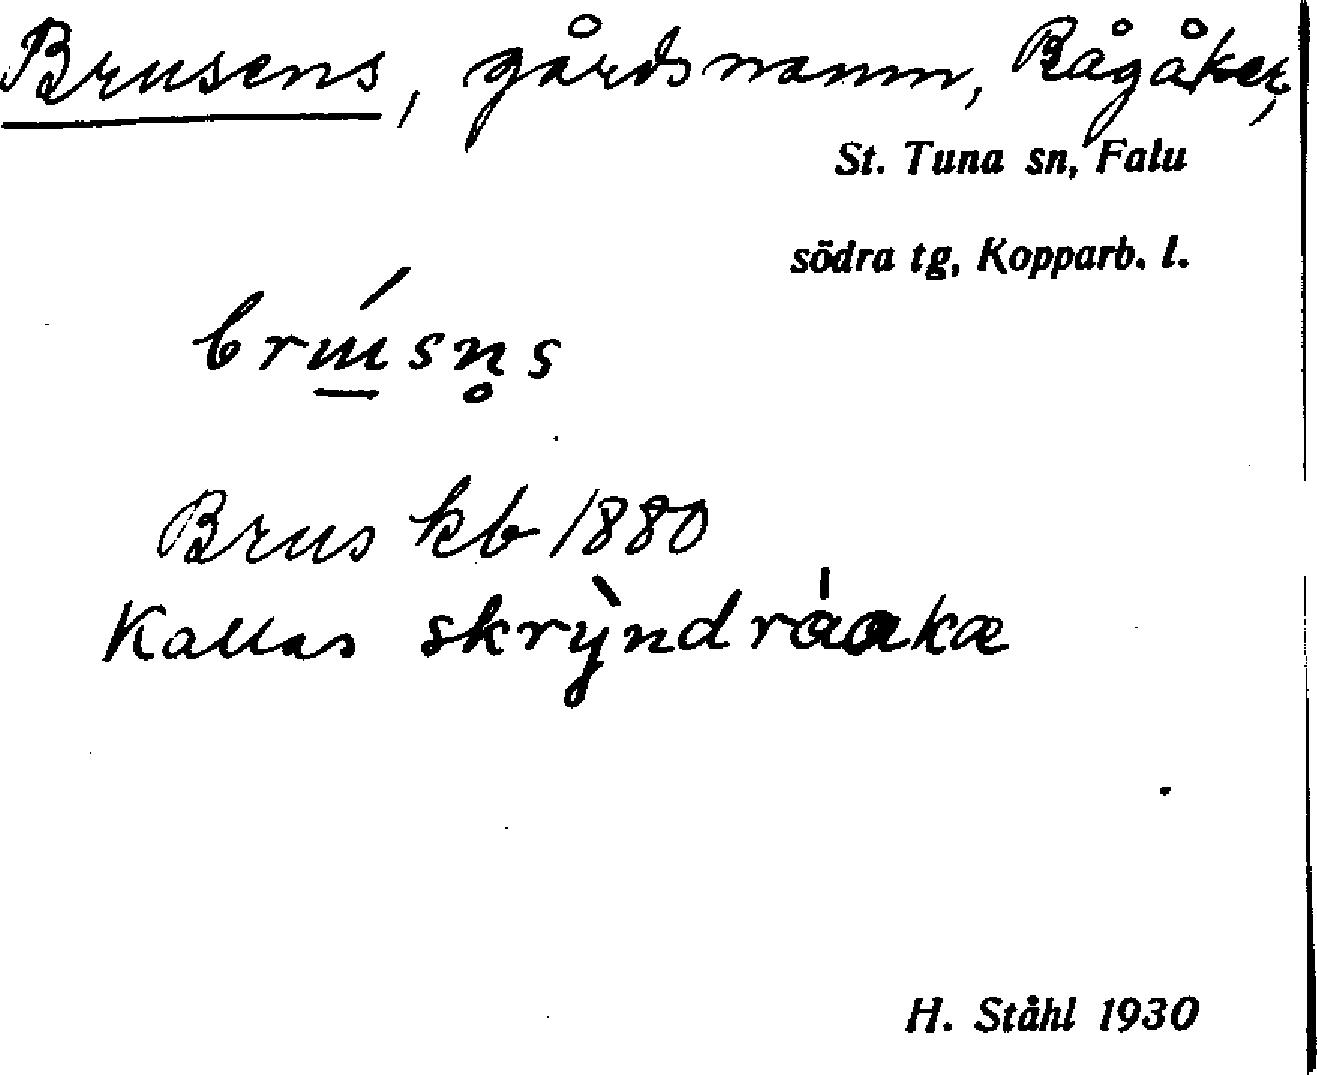 Brusens, gårdsnamn, Rågåker,
St. Tuna sn, Falu
södra tg, Kopparb. l.
brɯ́sn̥s
Brus kb 1880
Kallas skrỳndráakæ
H. Ståhl 1930